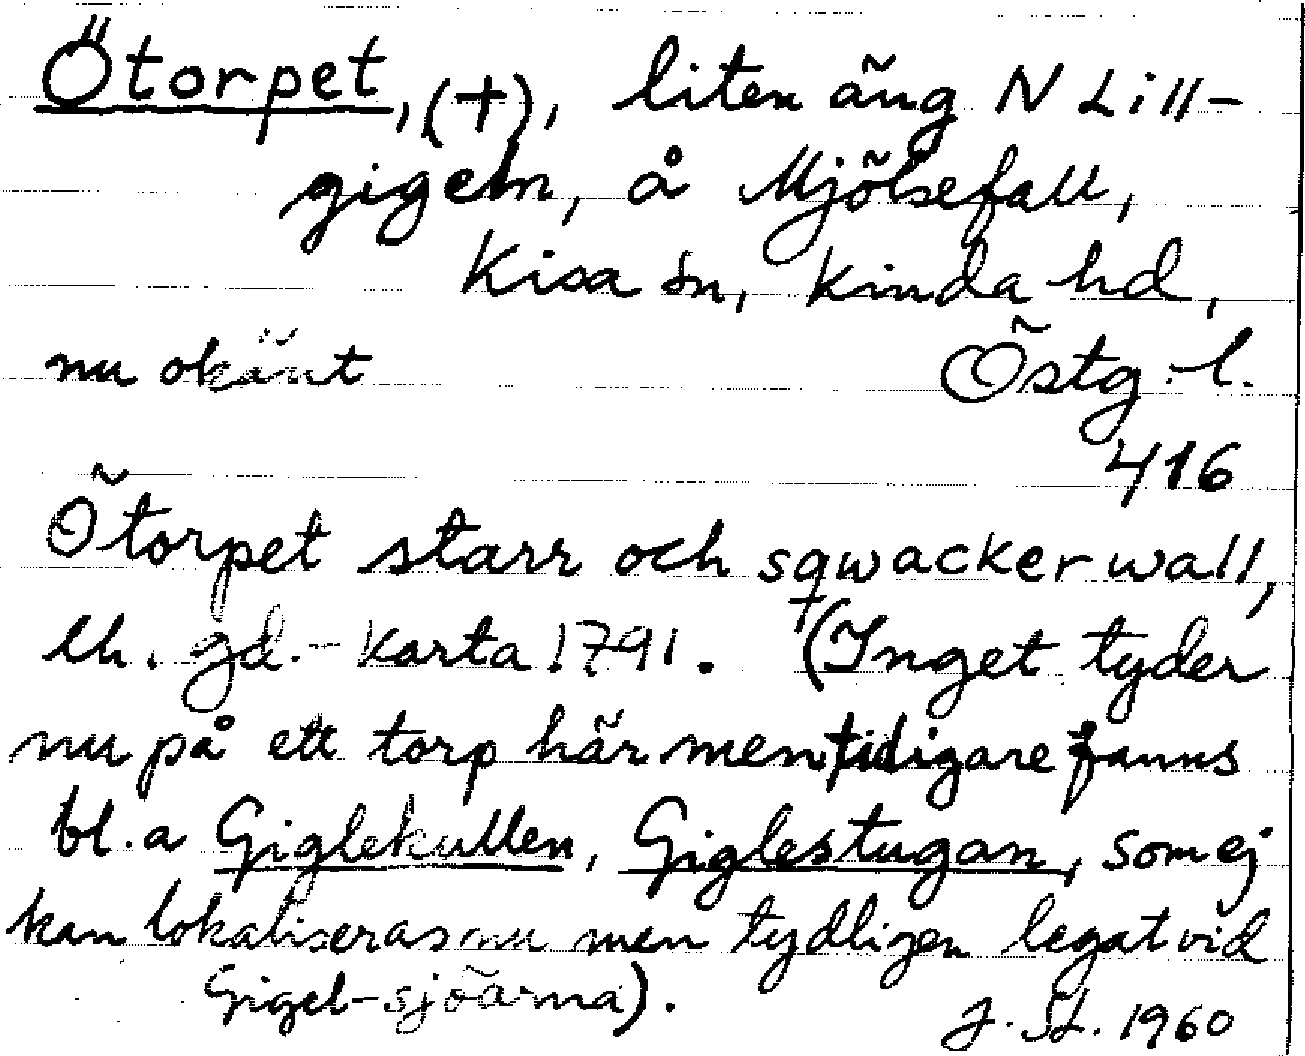 Ötorpet, (+), liten äng N Lill-
gigeln, å Mjölsefall,
Kisa sn, Kinda hd,
nu okänt Östg. l.
416
Ötorpet starr och sqwackerwall,
lh. gd.- karta 1791. (Inget tyder
nu på ett torp här men tidigare fanns
bl.a Giglekullen, Giglestugan, som ej
kan lokaliseras nu men tydligen legat vid
Gigel-sjöarna).
J. St. 1960